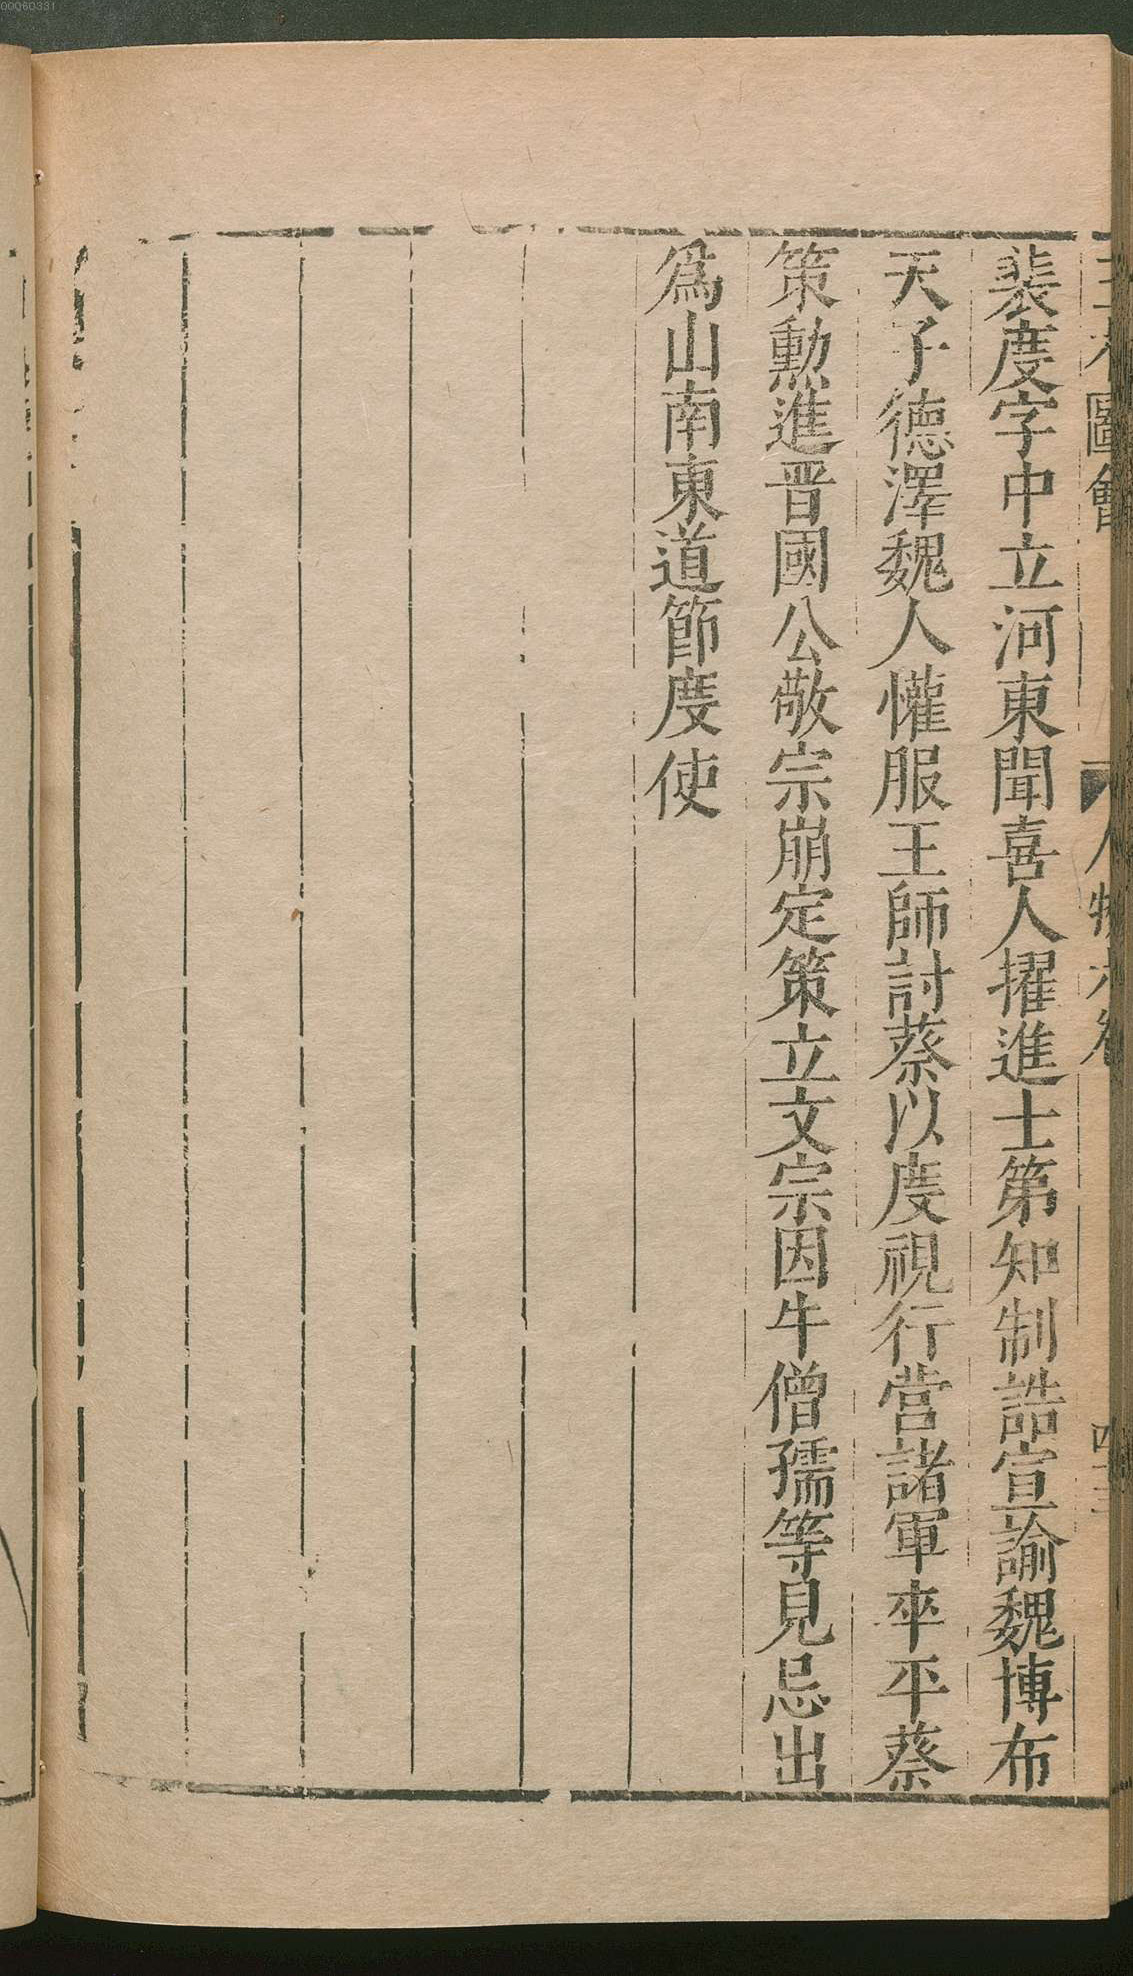 裴度字中立河東聞喜人擢進士第知制誥宣諭魏博布
天子德澤魏人懽服王師討蔡以度視行營諸軍卒平蔡
策勳進晉國公敬宗崩定策立文宗因牛僧孺等見忌出
爲山南東道節度使
圖會
人物六卷
00060331